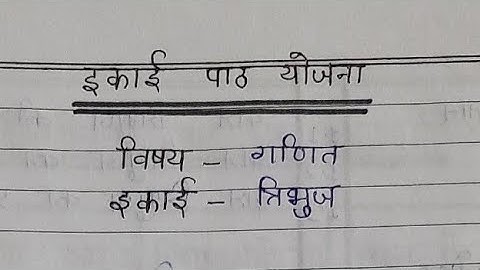 इकाई पाठ योजना
विषय - गणित
इकाई - त्रिभुज